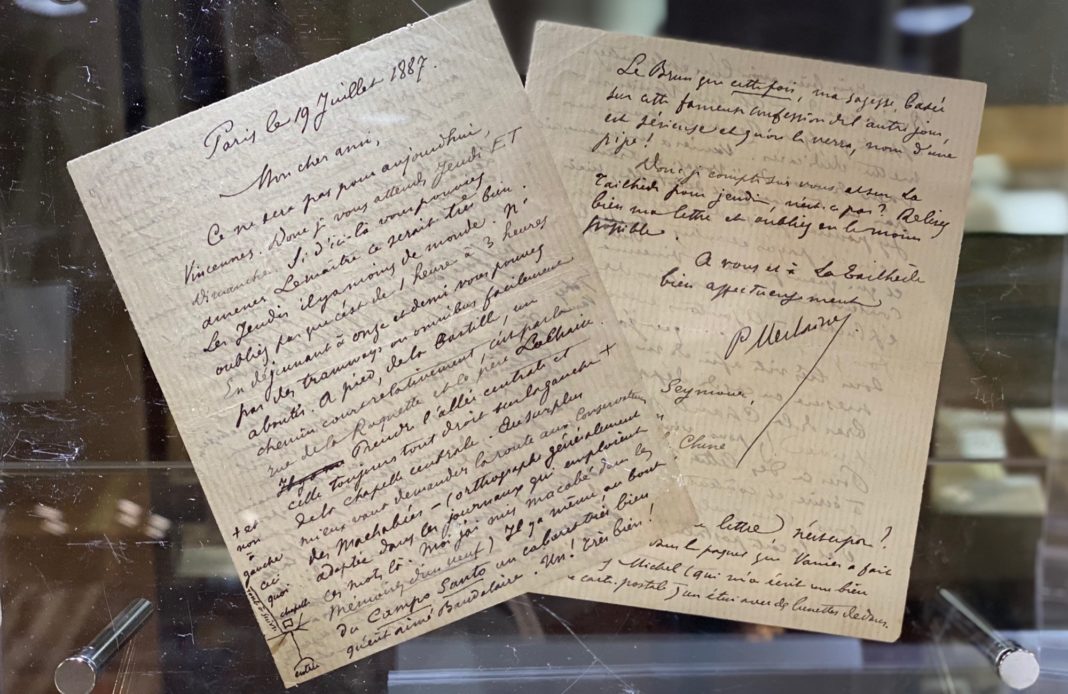 Paris le 19 Juillet 1887.
Mon cher ami,
Ce ne sera pas pour aujourd'hui,
Vincennes. Donc je vous attends Jeudi ET
Dimanche. Si d'ici là vous pouvez
amener Lemaître ce serait très bien.
Les Jeudis il y a moins de monde. N'
oubliez pas précisé de 1 heure à 3 heures
En déjeunant à onze et demi vous pouvez
par des tramways ou omnibus facilement
aboutir. A pied, de la Bastille, un
chemin court relativement, c'est par la
rue de la Roquette et le père Lachaise.
Prendre l'allée centrale et
celle toujours tout droit sur la gauche +
de la chapelle centrale. Au surplus
mieux vaut demander la route aux Conservateurs
des Machabées - (orthographe généralement
adoptée dans les journaux qui emploient
ces mots là. Moi j'ai mis macabé dans les
Mémoires d'un veuf) Il y a même au bout
du Campo Santo un cabaret très bien
qu'eut aimé Baudelaire. Un! Très bien!
+ et
non
à
gauche
ceci
quoi
tout droit
chapelle
entrée
Le Brun que cette fois, ma sagesse, basée
sur cette fameuse confession de l'autre jour
est sérieuse et qu'on le verra, nom d'une
pipe!
Donc je compte sur vous et sur La
Tailhède pour jeudi, n'est-ce pas? Relisez
bien ma lettre et oubliez en le moins
possible.
A vous et à La Tailhède
bien affectueusement
P Verlaine
Seymour,
Chine
lettre) n'est-ce pas?
dans le paquet que Vanier a fait
Michel (qui m'a écrit un bien
carte postale) un étui avec des lunettes dedans.